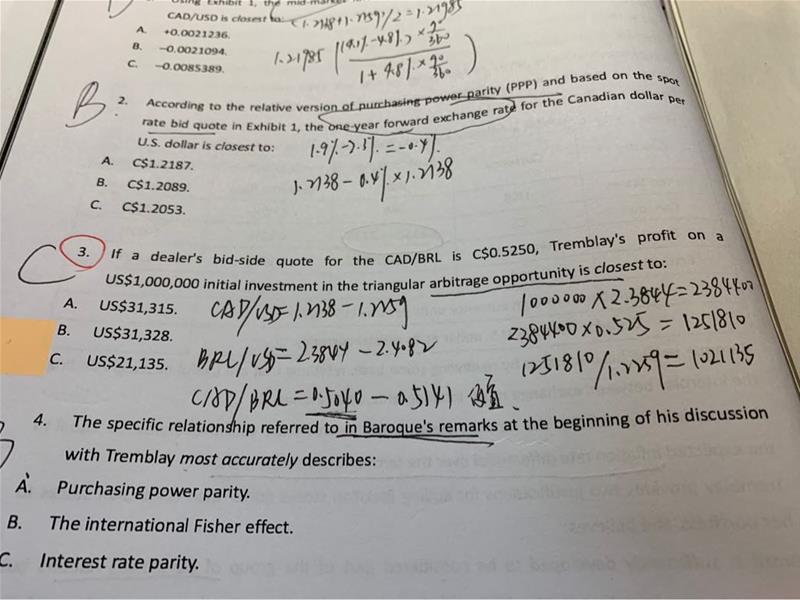 Using Exhibit 1, the mid-market
CAD/USD is closest to: (1.2138+1.2259)/2 = 1.21985
A. +0.0021236.
B. −0.0021094.
C. −0.0085389.
1.21985 ( (4.1%-4.8%) × 90/360 / 1 + 4.8% × 90/360 )
B
2. According to the relative version of purchasing power parity (PPP) and based on the spot
rate bid quote in Exhibit 1, the one-year forward exchange rate for the Canadian dollar per
U.S. dollar is closest to: 1.9%-2.3% = -0.4%.
A. C$1.2187. 1.2138 - 0.4% × 1.2138
B. C$1.2089.
C. C$1.2053.
C
3. If a dealer's bid-side quote for the CAD/BRL is C$0.5250, Tremblay's profit on a
US$1,000,000 initial investment in the triangular arbitrage opportunity is closest to:
A. US$31,315. CAD/USD = 1.2138 - 1.2259 1000000 × 2.3844 = 2384400
B. US$31,328. BRL/USD = 2.3844 - 2.4082 2384400 × 0.525 = 1251810
C. US$21,135. CAD/BRL = 0.5040 - 0.5141 1251810/1.2259 = 1021135
4. The specific relationship referred to in Baroque's remarks at the beginning of his discussion
with Tremblay most accurately describes:
A. Purchasing power parity.
B. The international Fisher effect.
C. Interest rate parity.